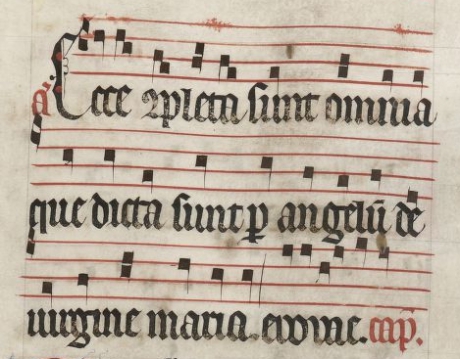 a. Ecce ꝯpleta sunt omnia
que dicta sunt ꝑ angelū de
uirgine maria. euouae. cap̄.